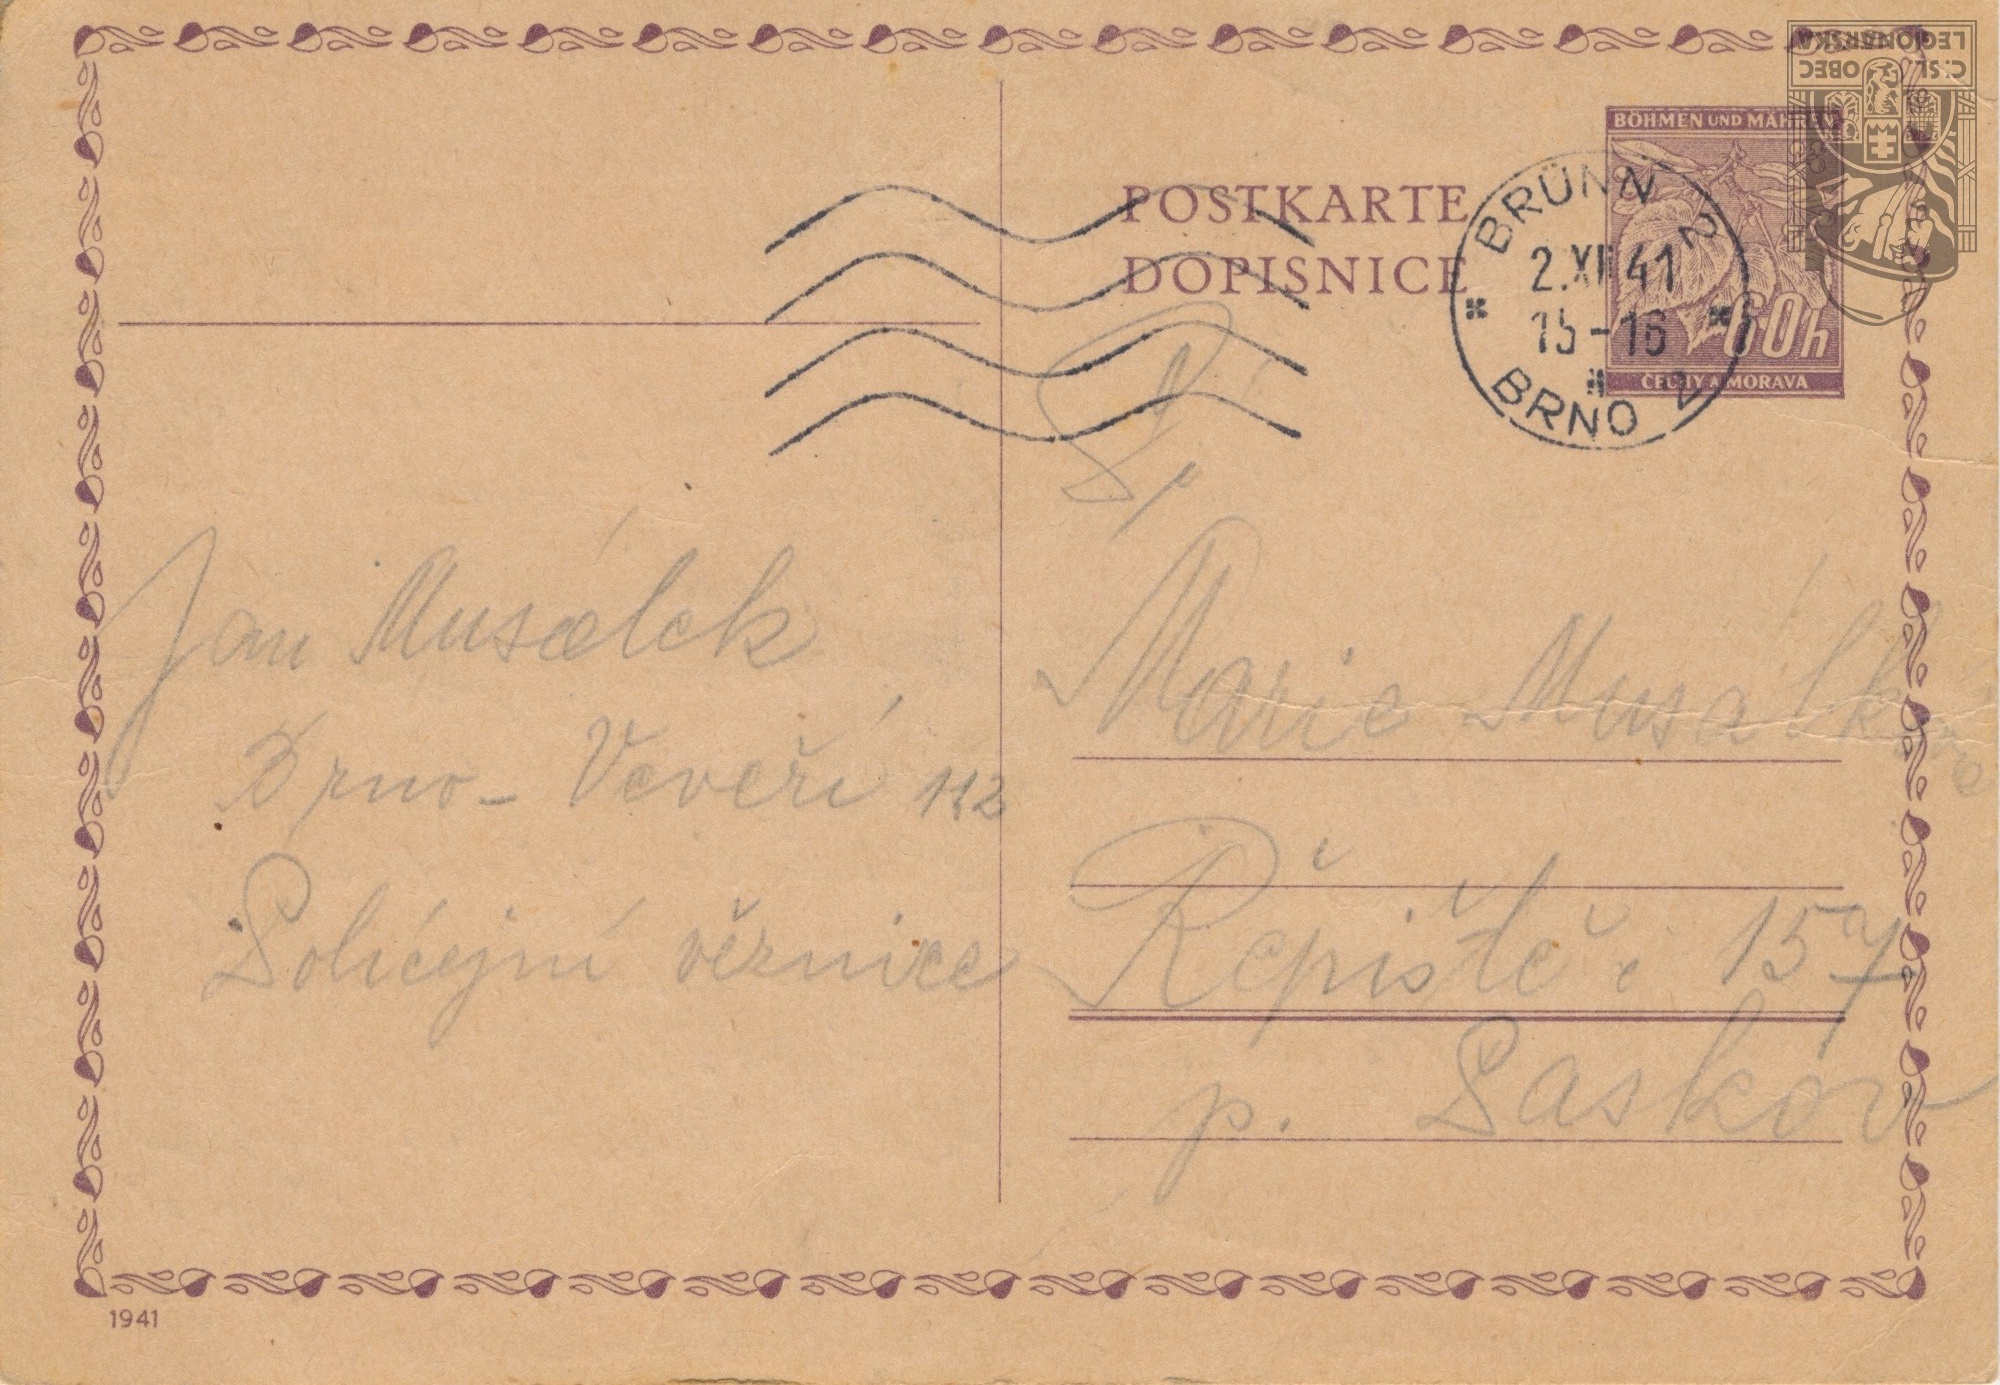 C.SL. OBEC
LEGIONÁŘSKÁ
BÖHMEN UND MÄHREN
60h
ČECHY A MORAVA
POSTKARTE
DOPISNICE
BRÜNN 2
2.XII 41
15-16
BRNO 2
Jan Musálek
Brno - Veveří 112
Policejní věznice
Marie Musálková
Řepiště č 157
p. Paskov
1941